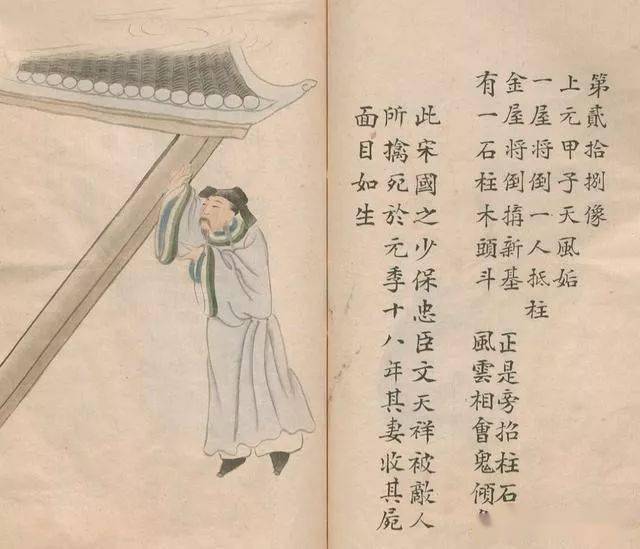 第貳拾捌像
上元甲子天風姤
一屋將倒一人抵柱
金屋將倒搆新基　正是旁招柱石
有一石柱木頭斗　風雲相會鬼傾
此宋國之少保忠臣文天祥被敵人
所擒死於元季十八年其妻收其屍
面目如生